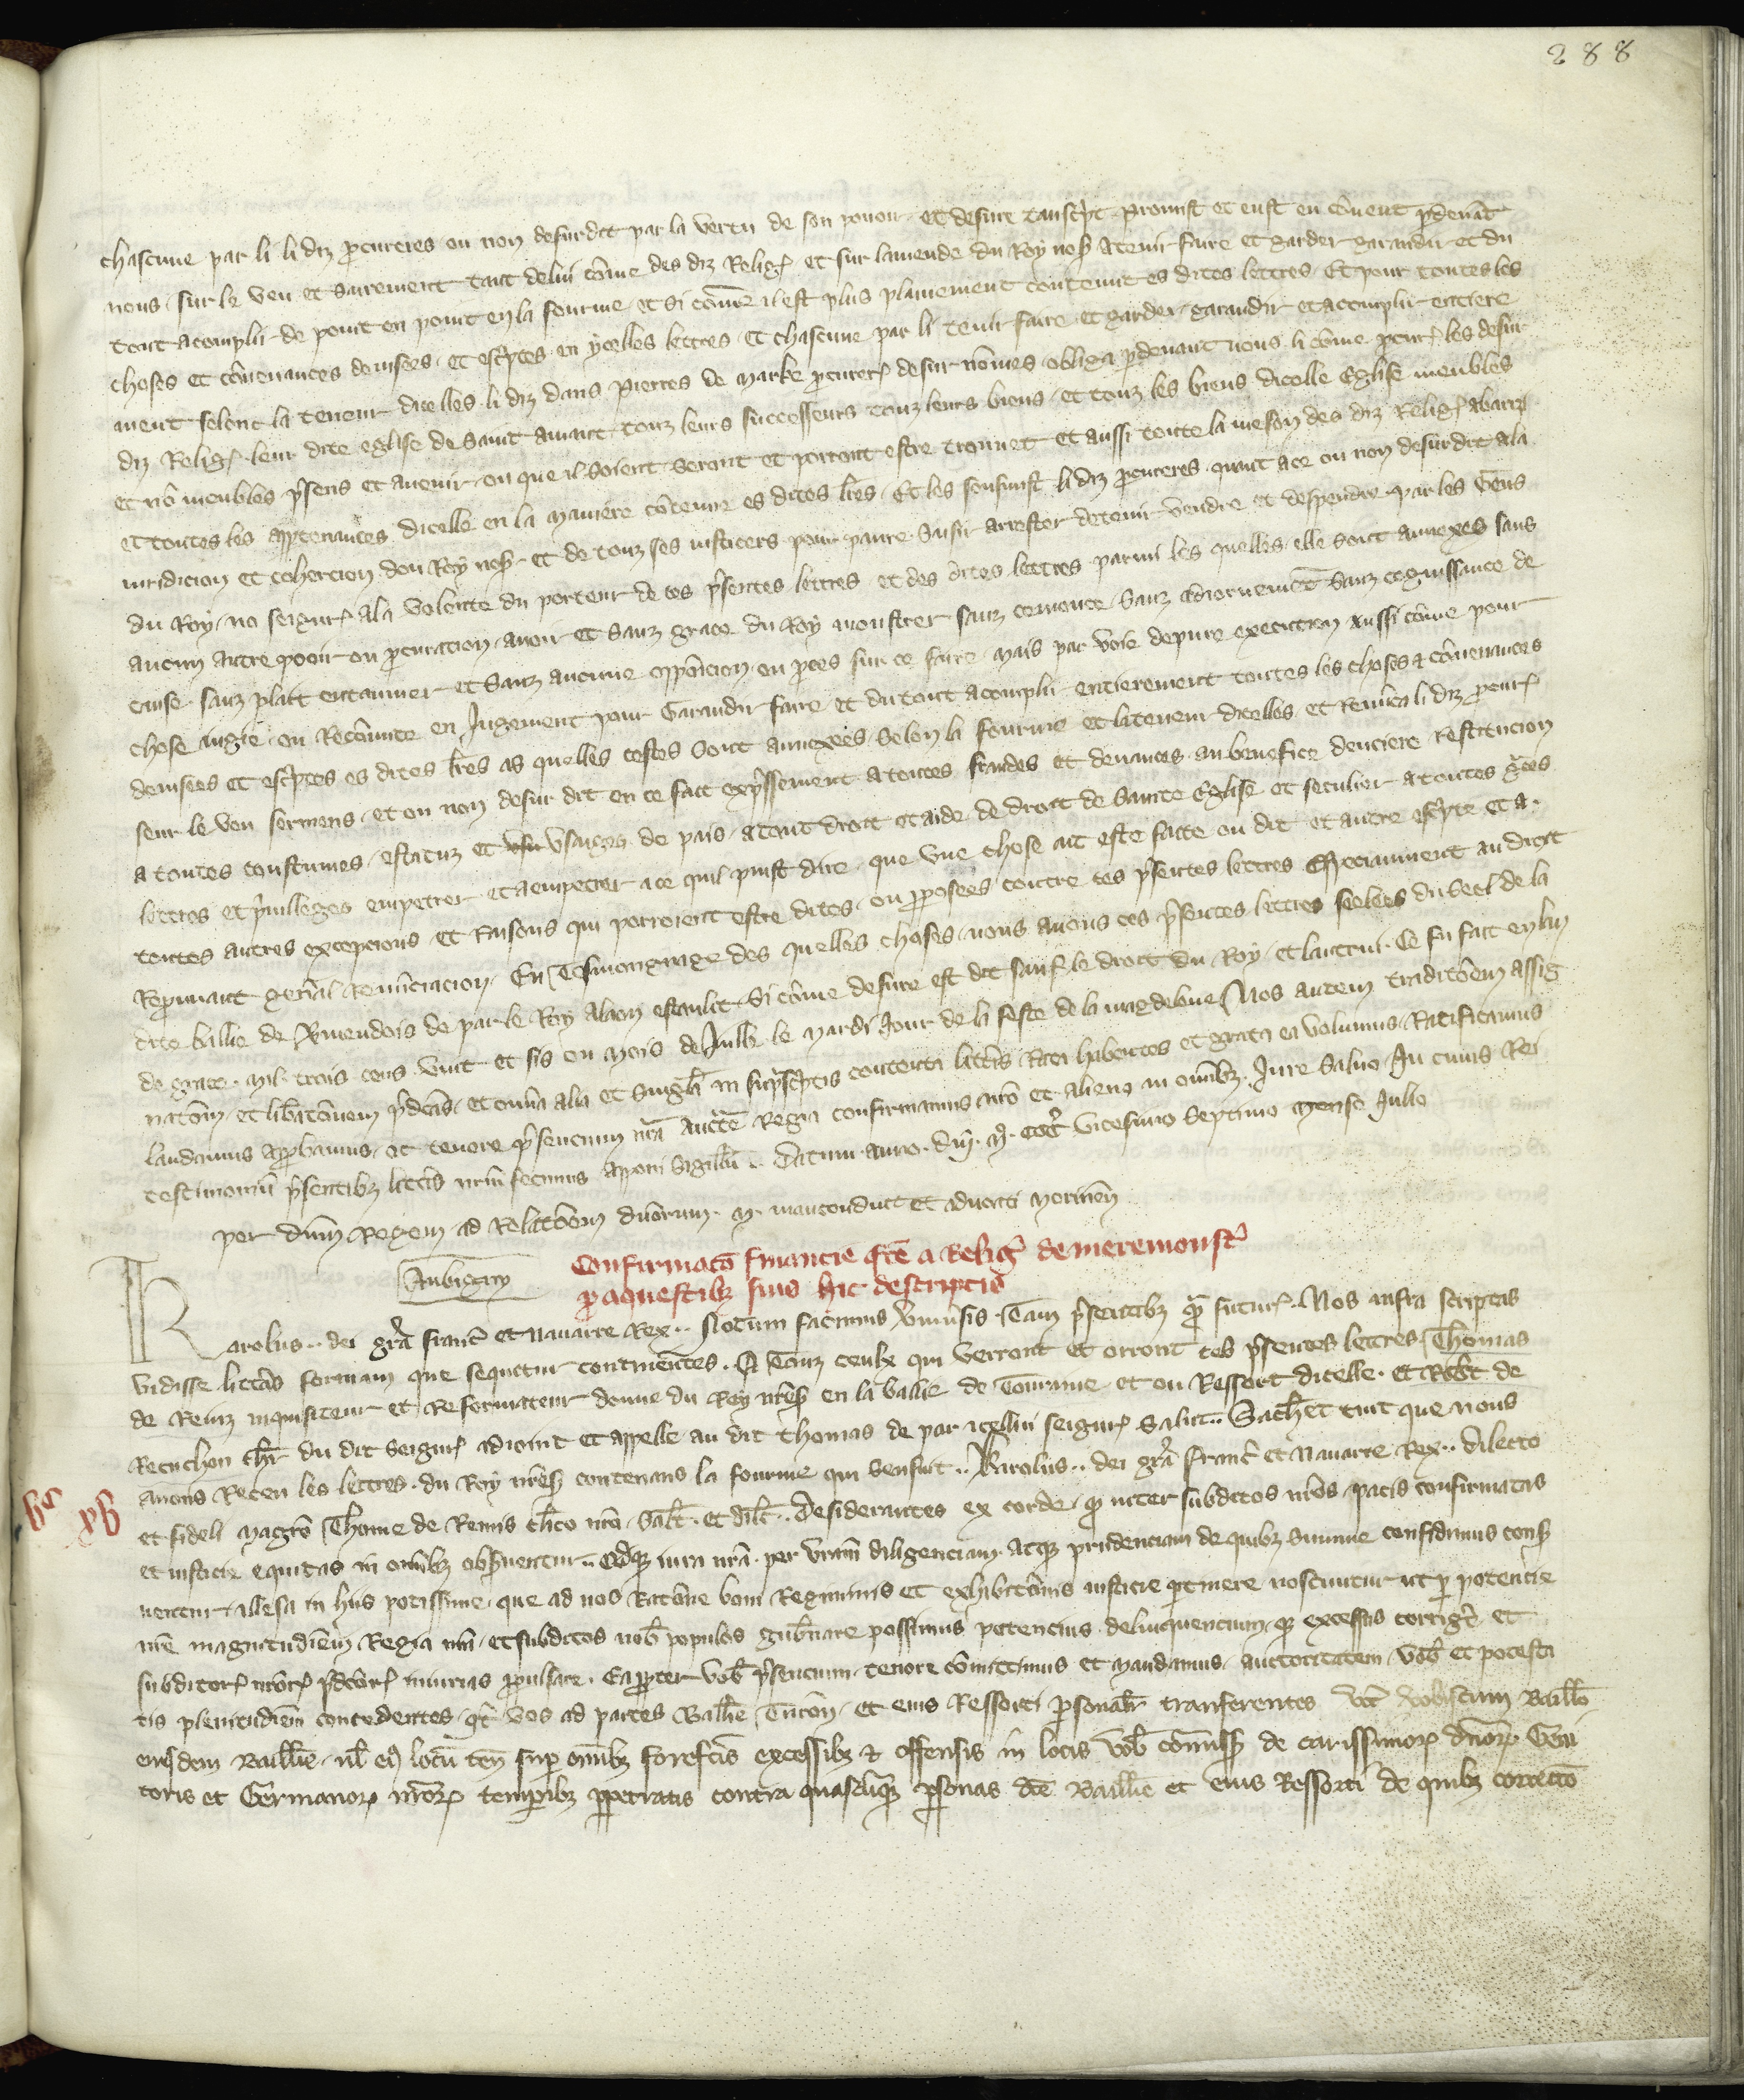 288
chascune par li li diz procureres ou non desurdit par la vertu de son pouoir et desure transcript promist et eust en couent pardeuant
nous sur le veu et sairement tant de lui come des diz Relig et sur lamende du Roy nos a tenir faire et garder garandir et du
tout acomplir de point en point en la fourme et si come il est plus plainement contenut es dites lettres Et pour toutes les
choses et conuenances deuisees et escriptes en ycelles lettres et chascune par li tenir faire et garder garandir et acomplir entiere
ment selonc la teneur dicelles li diz dans Pierres de Marke procurer desur nomes obliga pardeuant nous li come procur les desur
diz Relig leur dite eglise de Saint Amant touz leurs successeurs touz leurs biens et touz les biens dicelle Eglise meubles
et no meubles presens et auenir ou que il soient seront et porront estre trouuet et aussi toute la meson des diz Relig
et toutes les appartenances dicelle en la maniere contenue es dites lres Et les sousmist li diz procureres quant a ce ou non desurdit a la
iuridicion et cohercion dou Roy nos et de touz ses iusticers pour panre saisir arrester detenir vendre et despendre par les Gens
du Roy no seignr a la volente du porteur de ces presentes lettres et des dites lettres parmi les quelles elle sont annexes sans
aucun autre pooir ou procuracion auoir et sanz grace du Roy monstrer sanz comonce sanz adiornement sanz cognissance de
cause sanz plait entaumer et sanz aucune opposicion ou proces sur ce faire mais par voie de pure execucion aussi come pour
chose iugie ou Reconnute en Jugement pour Garandir faire et du tout acomplir entierement toutes les choses & conuenances
deuisees et escriptes es dites lres as quelles cestes sont annexees selon la fourme et la teneur dicelles et Renunca li diz procur
seur le veu sermens et ou non desur dit en ce fait expressement a toutes fraudes et deuances au benefice dentiere restitucion
a toutes coustumes estatuz et usaiges de pais a tout droit et aide de droit de Sainte Eglise et seculier a toutes graces
lettres et priuilleges empetrer et a empetrer a ce quil puist dire que vne chose ait este faite ou dit et autre escripte et a
toutes autres excepcions et Raisons qui porroient estre dites ou proposees contre ces presentes lettres Especiaument au droit
Reprouuant general Renunciacion En Tesmoingnage des quelles choses nous auons ces presentes lettres seelees du seel de la
dite ballie de Vmendois de par le Roy a laon estaulit si come desure est dit sauf le droit du Roy et lautrui Ce fu fait en lan
de grace mil trois cens vint et sis ou mois de Juille le mardi Jour de la feste de la magdelene Nos autem traditoem assig
natom et libratonem predcas et omia alia et singula in suprascriptis contenta litteris Rata habentes et grata ea volumus Ratificamus
laudamus approbamus et tenore presentium nra aucte Regia confirmamus nro et alieno in omnibz Jure saluo In cuius Rei
testimonium presentibz litteris nrm fecimus apponi sigillu Datum anno dni M CCC vicesimo septimo mense Julio
per dnm Regem ad Relatoem dnorum M manconduit et aduocati
Aubigny
Confirmaco financie fce a Relig de meremonstr
pro aquestibz suis hic descriptis
Karolus dei gra Franc et Nauarre Rex Notum facimus vniuersis Tam presentibz quam futur Nos infra scriptas
vidisse litteras formam que sequitur continentes A Touz ceulx qui verront et orront ces presentes lettres Thomas
de Reinz inquisiteur et Reformateur donne du Roy nres en la ballie de Tourainne et ou Ressort dicelle et Robt de
Recuchon chr du dit seignr adioint et appelle au dit Thomas de par icellui seignr salut Sachet tuit que nous
auons Receu les lettres du Roy nres contenans la fourme qui sensuit Karolus dei gra Franc et Nauarre Rex dilecto
et fideli Magro Thome de Remis clico nro Salt et dilt Desiderantes ex corde quod inter subditos nros pacis confirmatas
et iusticie equitas in omibz obseruentur Quodque iura nra per vram diligenciam atque prudenciam de quibz summe confidimus conser
uentur illesa in hiis potissime que ad nos Ratone boni Regiminis et exhibitonis iusticie pertinere noscuntur ut per potencie
nre magnitudinem Regia nra et subditos nob populos gubernare possimus potencius delinquencium que excessus corrigere et
subditor nror predcor iniurias propulsare Eapropter vob presencium tenore comittimus et mandamus auctoritatem vob et potesta
tis plenitudinem concedentes quatenus vos ad partes Ballie Turon et eius Ressorti personalr tranferentes vocat vobiscum Baillo
eiusdem Baillie ul eius locum ten super omnibz forefcis excessibz & offensis in locis vob comissis de carissimor dnor Geni
toris et Germanor nror temporibz perpetratis contra quascunque personas dce Baillie et eius Ressorti de quibz correcto